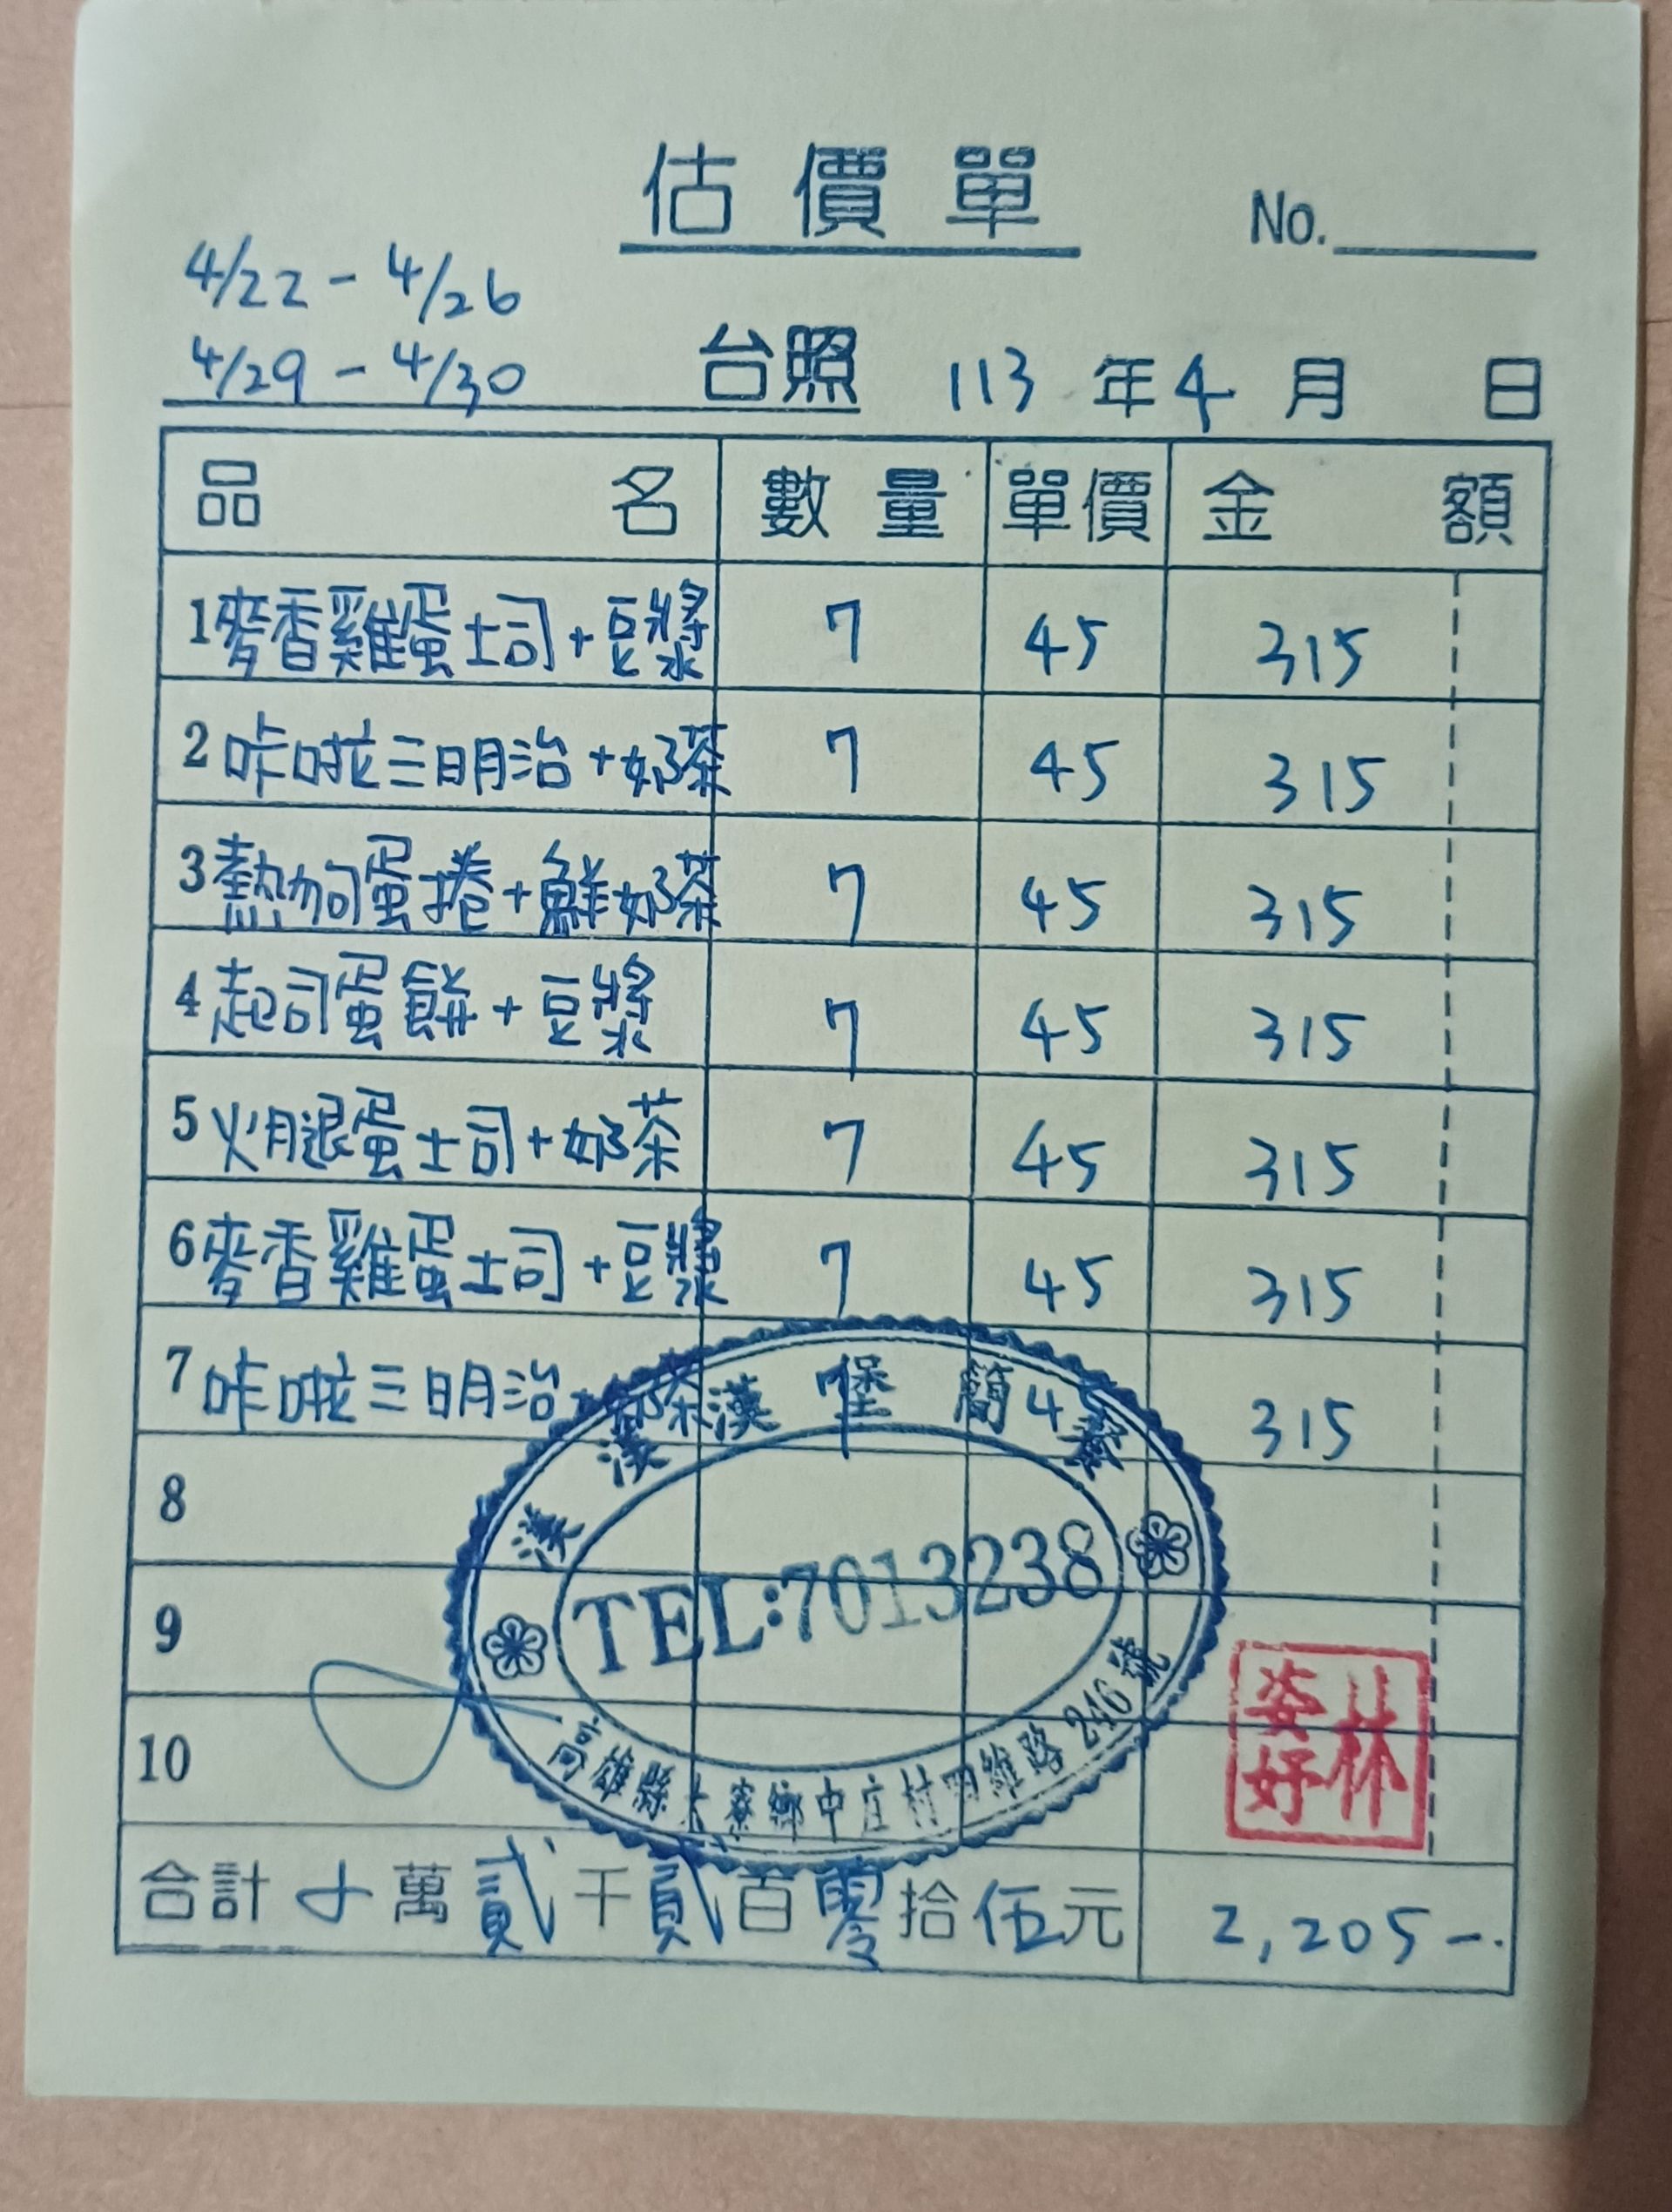 估價單 No.
4/22 - 4/26
4/29 - 4/30 台照 113 年 4 月 日
品名 數量 單價 金額
1 麥香雞蛋土司+豆漿 7 45 315
2 咔啦三明治+奶茶 7 45 315
3 熱狗蛋捲+鮮奶茶 7 45 315
4 起司蛋餅+豆漿 7 45 315
5 火腿蛋土司+奶茶 7 45 315
6 麥香雞蛋土司+豆漿 7 45 315
7 咔啦三明治+奶茶 7 4 315
8
9
10
漢漢漢堡簡餐
TEL:7013238
高雄縣大寮鄉中庄村四維路246號
林姿妤
合計 萬貳千貳百零拾伍元 2,205-